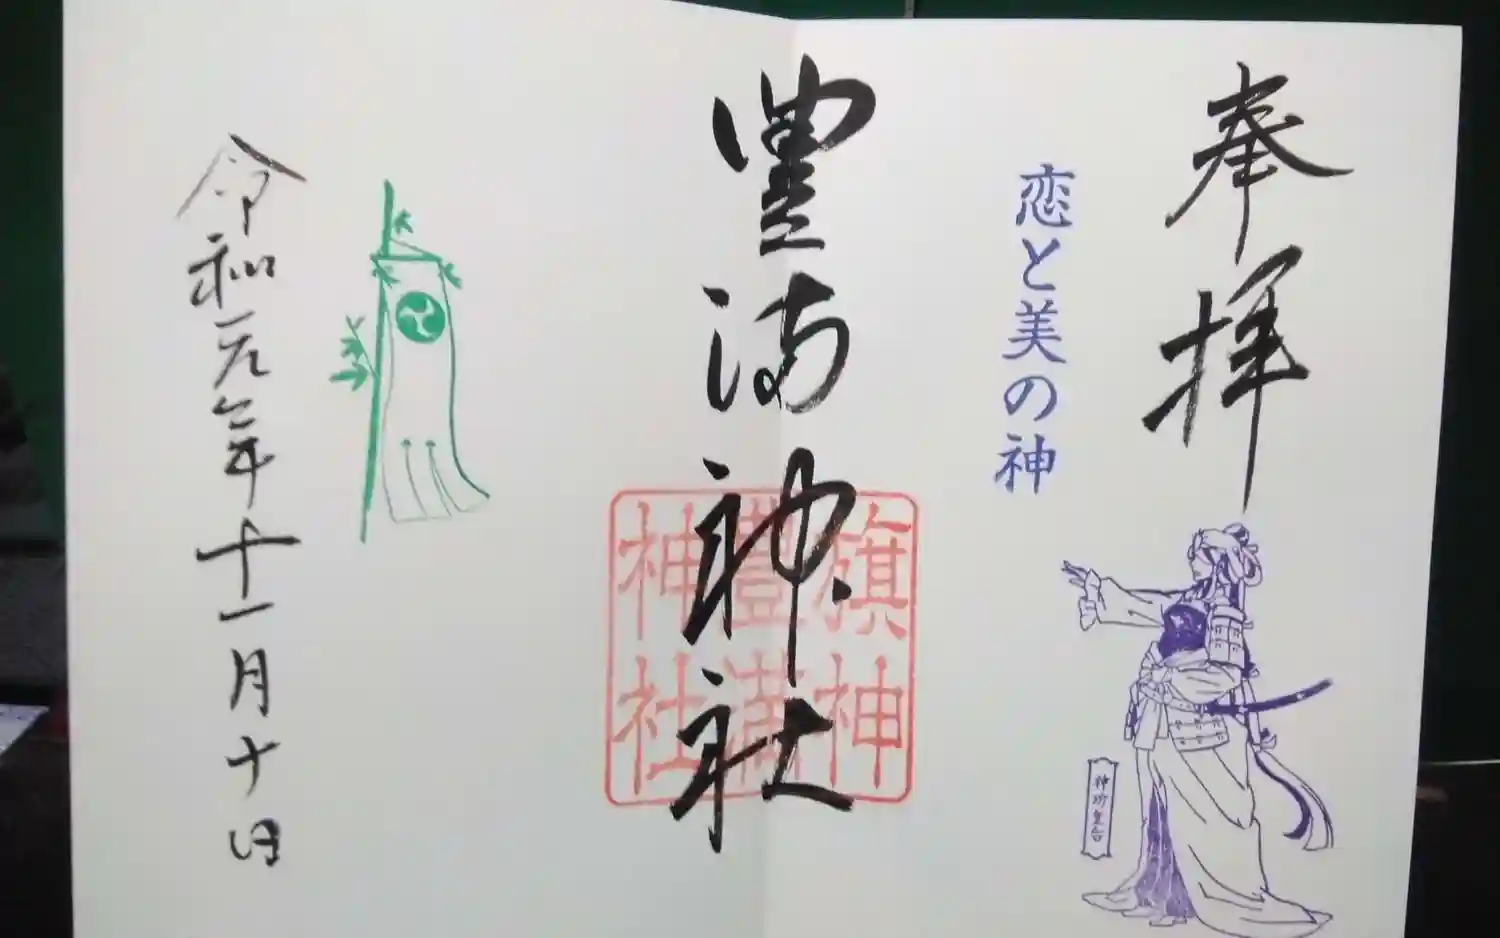 奉拝
恋と美の神
神功皇后
豊満神社
旗神
豊満
神社
令和元年十一月十日